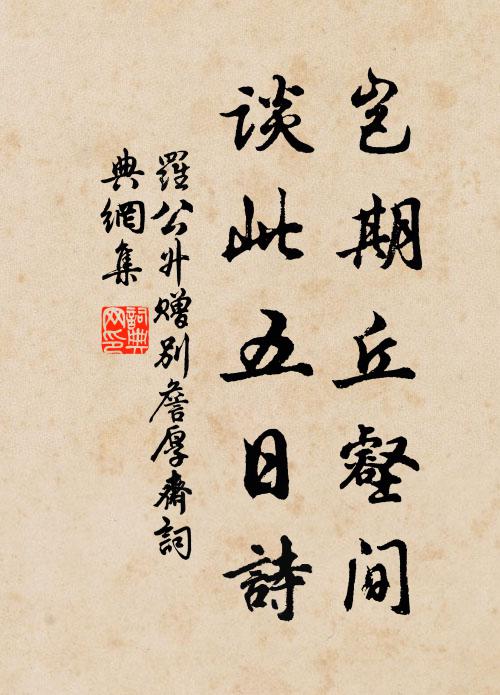 岂期丘壑间
談此五日詩
羅公升贈别詹厚齋詞
典網集
詞典
网印